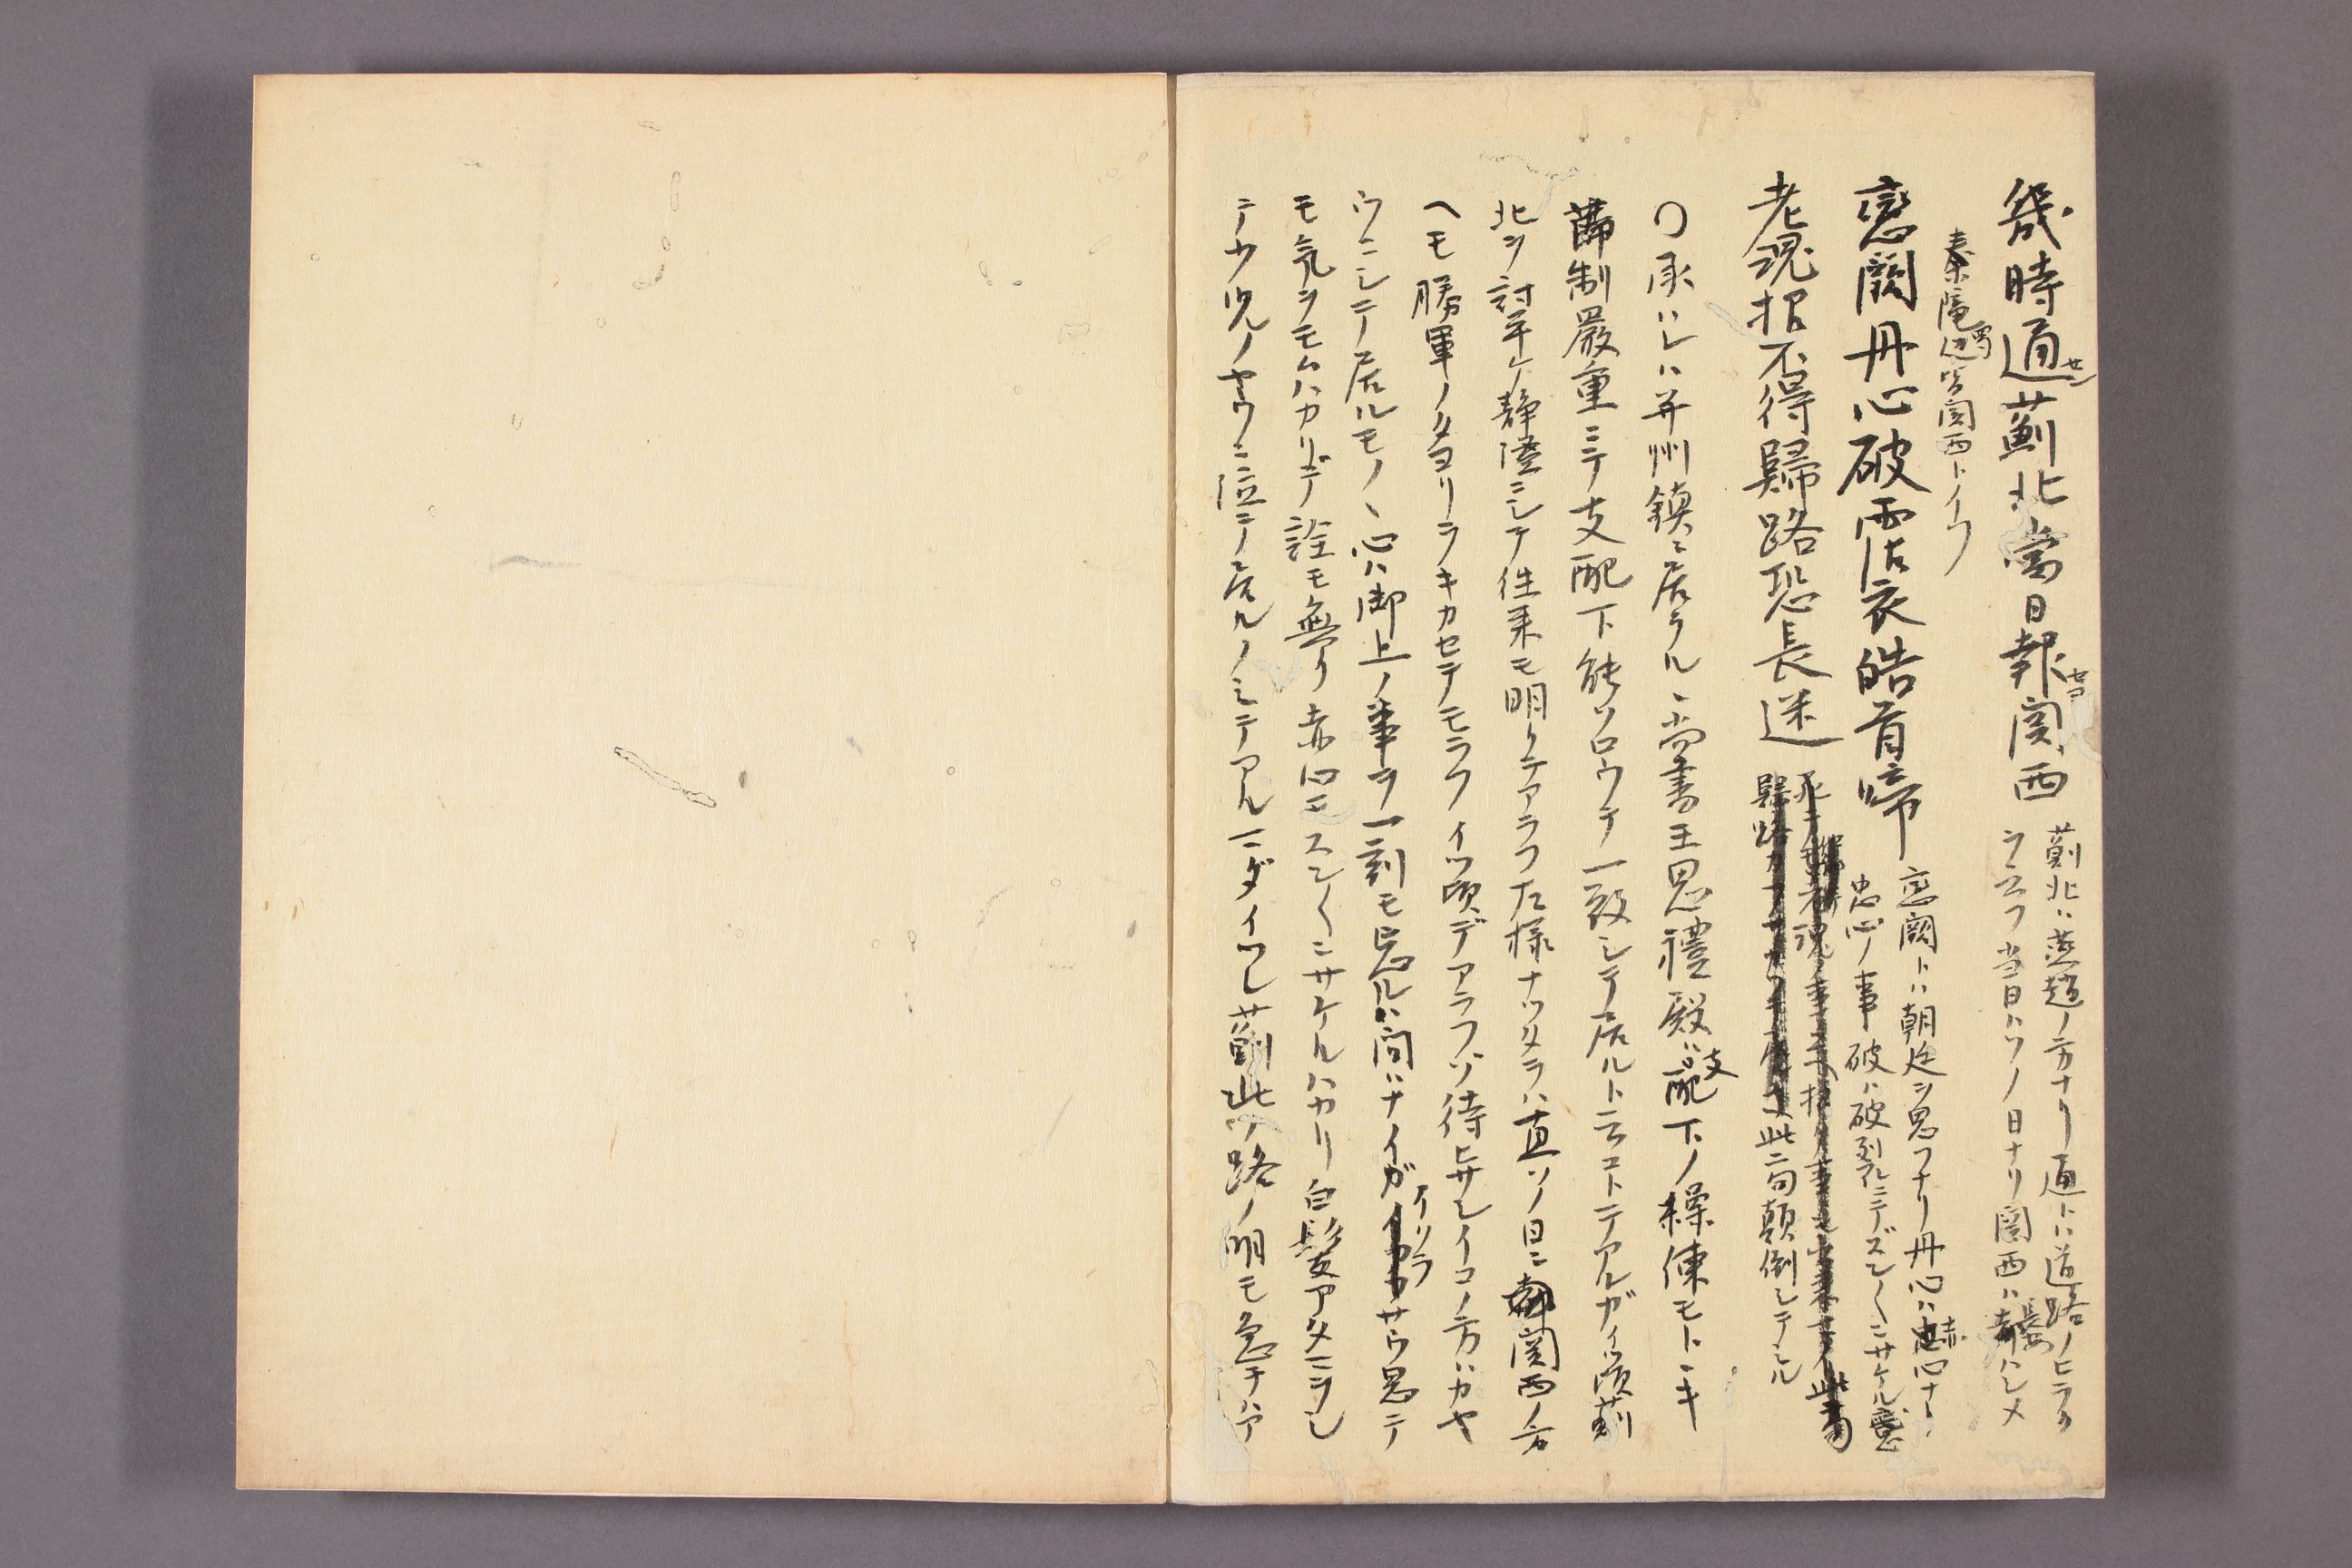 幾時通薊北當日報関西
薊北ハ燕趙ノ方ナリ通トハ道路ノヒラク
ヲ云フ当日ハソノ日ナリ関西ハ長安ハシメ
秦隴辺ヲ関西トイフ
戀闕丹心破霑衣皓首啼
恋闕トハ朝廷ヲ思フナリ丹心ハ赤心ナリ
忠心ノ事破ハ破裂ニテズンズンニサケル意
老魂招不得歸路恐長迷
此二句顛倒シテミル
〇承ハレハ并州鎮ニ居ラル丶尚書王思禮殿ハ支配下ノ操練モトヽキ
節制嚴重ニテ支配下能ソロウテ一致シテ居ルト云コトテアルガイツ頃薊
北ヲ討平ケ静謐ニシテ往来モ明クテアラフ左様ナツタラハ直ソノ日ニ関西ノ方
ヘモ勝軍ノタヨリヲキカセテモラフイツ頃デアラフゾ待ヒサシイコノ方ハカヤ
ウニシテ居ルモノ丶心ハ御上ノ事ヲ一刻モ忘ルハ間ハナイガイクラサウ思テ
モ気ヲモムハカリデ詮モ無ク赤心モスンスンニサケルハカリ白髪アタマニシ
テ少児ノヤウニ泣テ居ルノミテアルマダイツレ薊北ノ路ノ明モ急テハア